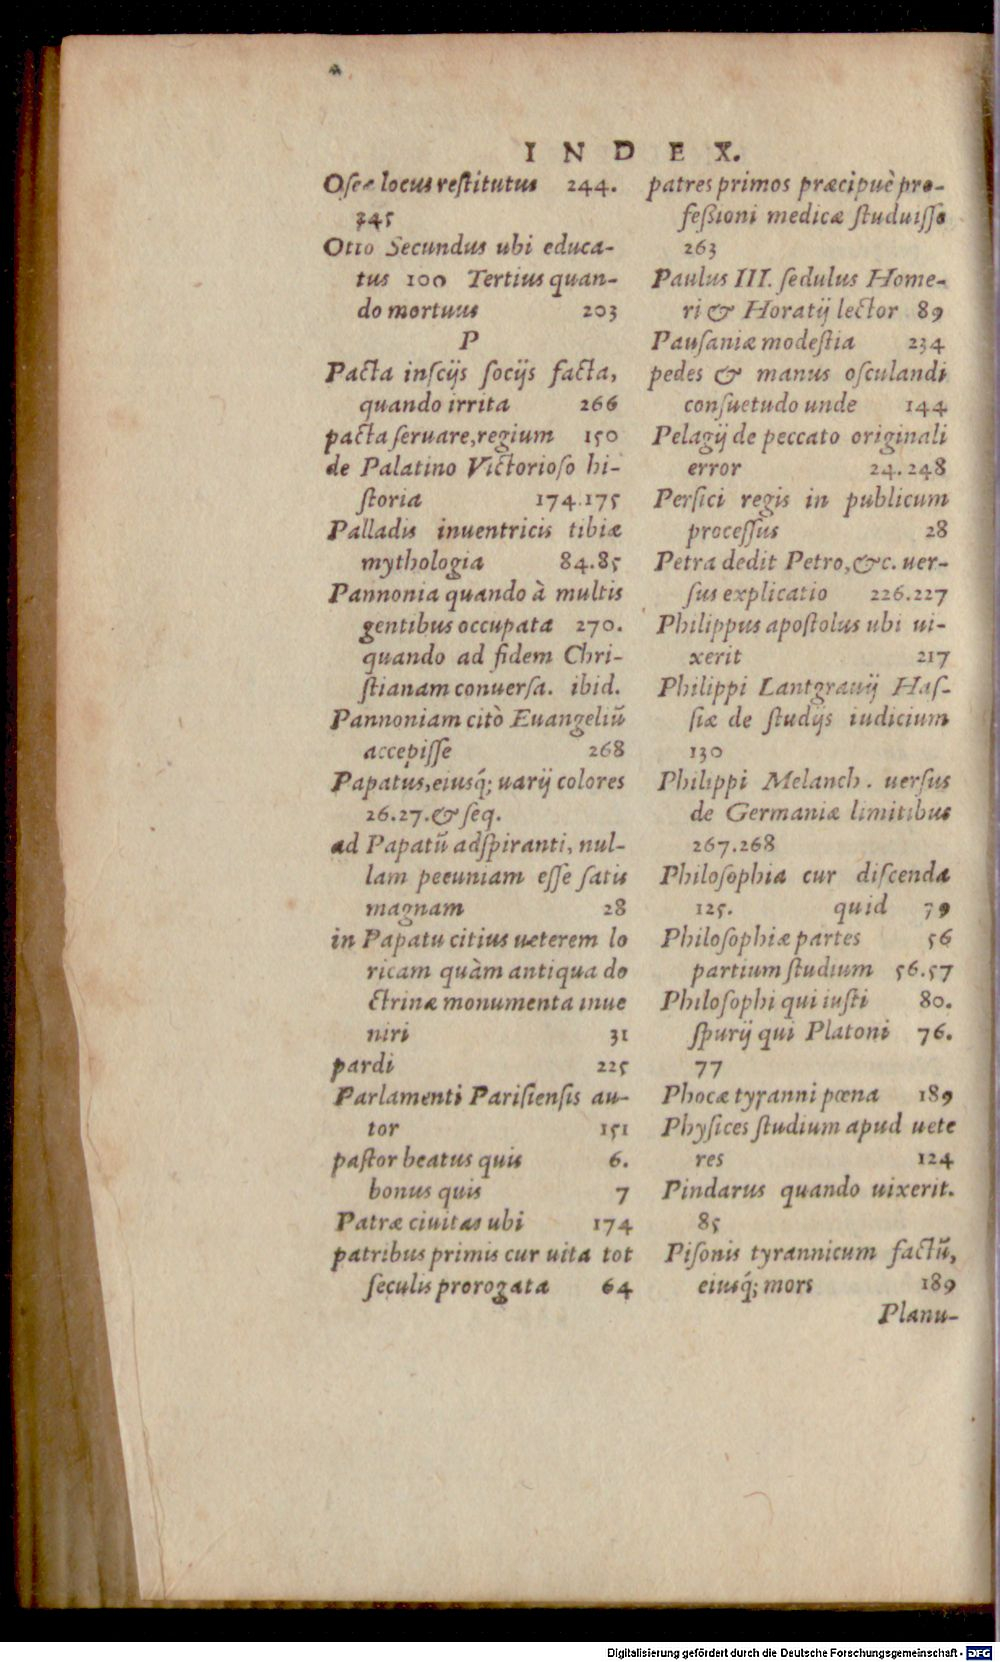 INDEX.
Oseæ locus restitutus 244.
345
Otto Secundus ubi educa-
tus 100 Tertius quan-
do mortuus 203
P
Pacta inscijs socijs facta,
quando irrita 266
pacta seruare, regium 150
de Palatino Victorioso hi-
storia 174.175
Palladis inuentricis tibiæ
mythologia 84.85
Pannonia quando à multis
gentibus occupata 270.
quando ad fidem Chri-
stianam conuersa. ibid.
Pannoniam citò Euangeliũ
accepisse 268
Papatus, eiusq́; uarij colores
26.27.& seq.
ad Papatũ adspiranti, nul-
lam pecuniam esse satis
magnam 28
in Papatu citius ueterem lo
ricam quàm antiqua do
ctrinæ monumenta inue
niri 31
pardi 225
Parlamenti Parisiensis au-
tor 151
pastor beatus quis 6.
bonus quis 7
Patræ ciuitas ubi 174
patribus primis cur uita tot
seculis prorogata 64
patres primos præcipuè pro-
feßioni medicæ studuisse
263
Paulus III. sedulus Home-
ri & Horatij lector 89
Pausaniæ modestia 234
pedes & manus osculandi
consuetudo unde 144
Pelagij de peccato originali
error 24.248
Persici regis in publicum
processus 28
Petra dedit Petro, &c. uer-
sus explicatio 226.227
Philippus apostolus ubi ui-
xerit 217
Philippi Lantgrauij Has-
siæ de studijs iudicium
130
Philippi Melanch. uersus
de Germaniæ limitibus
267.268
Philosophia cur discenda
125. quid 79
Philosophiæ partes 56
partium studium 56.57
Philosophi qui iusti 80.
spurij qui Platoni 76.
77
Phocæ tyranni pœna 189
Physices studium apud uete
res 124
Pindarus quando uixerit.
85
Pisonis tyrannicum factũ,
eiusq́; mors 189
Planu-
Digitalisierung gefördert durch die Deutsche Forschungsgemeinschaft - DFG